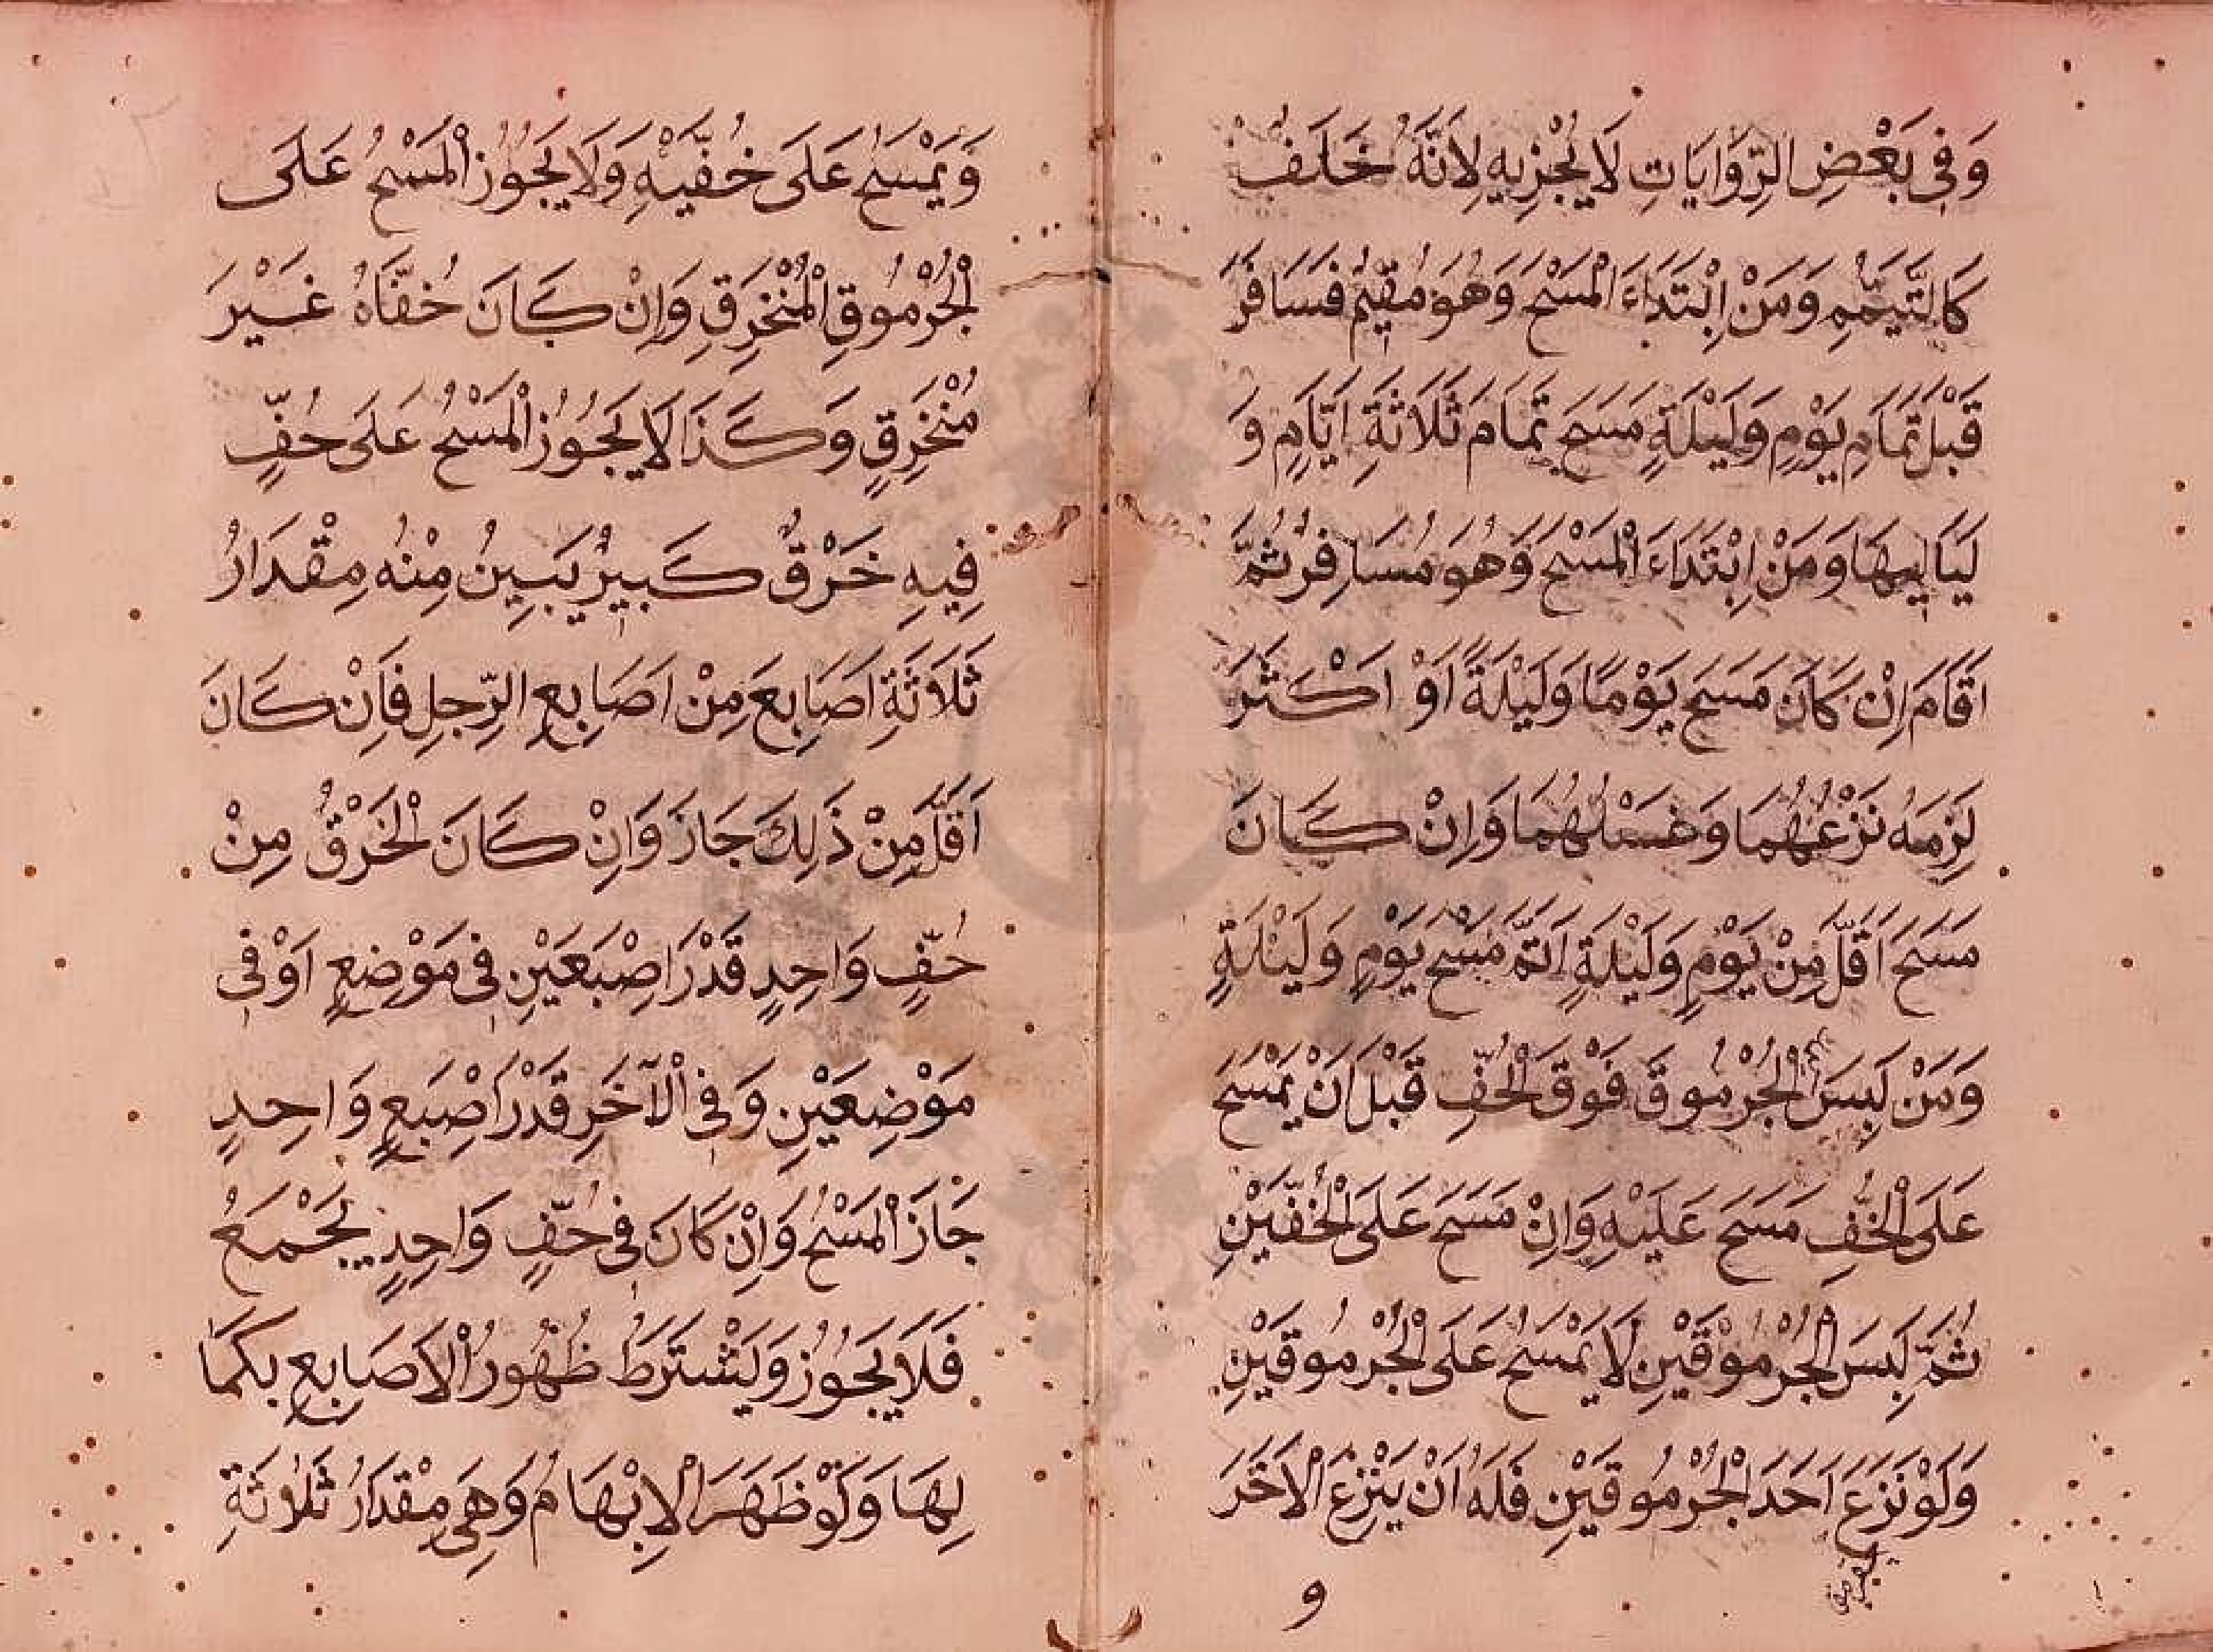 وَفِي بَعْضِ الرِّوَايَاتِ لَا يُجْزِيهِ لِاَنَّهُ خَلَفٌ
كَالتَّيَمُّمِ وَمَنْ اِبْتَدَاءَ الْمَسْحَ وَهُوَ مُقِيمٌ فَسَافَرَ
قَبْلَ تَمَامِ يَوْمٍ وَلَيْلَةٍ مَسَحَ تَمَامَ ثَلَاثَةِ اَيَّامٍ وَ
لَيَالِيهَا وَمَنْ اِبْتَدَاءَ الْمَسْحَ وَهُوَ مُسَافِرٌ ثُمَّ
اَقَامَ اِنْ كَانَ مَسَحَ يَوْمًا وَلَيْلَةً اَوْ اَكْثَرَ
لَزِمَهُ نَزْعُهُمَا وَغَسْلُهُمَا وَاِنْ كَانَ
مَسَحَ اَقَلَّ مِنْ يَوْمٍ وَلَيْلَةٍ اَتَمَّ مَسْحَ يَوْمٍ وَلَيْلَةٍ
وَمَنْ لَبِسَ الْجُرْمُوقَ فَوْقَ الْخُفِّ قَبْلَ اَنْ يَمْسَحَ
عَلَى الْخُفِّ مَسَحَ عَلَيْهِ وَاِنْ مَسَحَ عَلَى الْخُفَّيْنِ
ثُمَّ لَبِسَ الْجُرْمُوقَيْنِ لَا يَمْسَحُ عَلَى الْجُرْمُوقَيْنِ
وَلَوْ نَزَعَ اَحَدَ الْجُرْمُوقَيْنِ فَلَهُ اَنْ يَنْزِعَ الْاَخَرَ
و
وَيَمْسَحُ عَلَى خُفَّيْهِ وَلَا يَجُوزُ الْمَسْحُ عَلَى
الْجُرْمُوقِ الْمُنْخَرِقِ وَاِنْ كَانَ خُفَّاهُ غَيْرَ
مُنْخَرِقٍ وَكَذَا لَا يَجُوزُ الْمَسْحُ عَلَى خُفٍّ
فِيهِ خَرْقٌ كَبِيرٌ يَبِينُ مِنْهُ مِقْدَارُ
ثَلَاثَةِ اَصَابِعَ مِنْ اَصَابِعِ الرِّجلِ فَاِنْ كَانَ
اَقَلَّ مِنْ ذَلِكَ جَازَ وَاِنْ كَانَ الْخَرْقُ مِنْ
خُفٍّ وَاحِدٍ قَدْرَ اِصْبَعَيْنِ فِي مَوْضِعٍ اَوْ فِي
مَوْضِعَيْنِ وَفِي الْآخَرِ قَدْرَ اِصْبَعٍ وَاحِدٍ
جَازَ الْمَسْحُ وَاِنْ كَانَ فِي خُفٍّ وَاحِدٍ يُجْمَعُ
فَلَا يَجُوزُ وَيَشْتَرَطُ ظُهُورُ الْاَصَابِعِ بِكَمَا
لِهَا وَلَوْ ظَهَرَ الْاِبْهَامُ وَهِيَ مِقْدَارُ ثَلٰاثَةِ